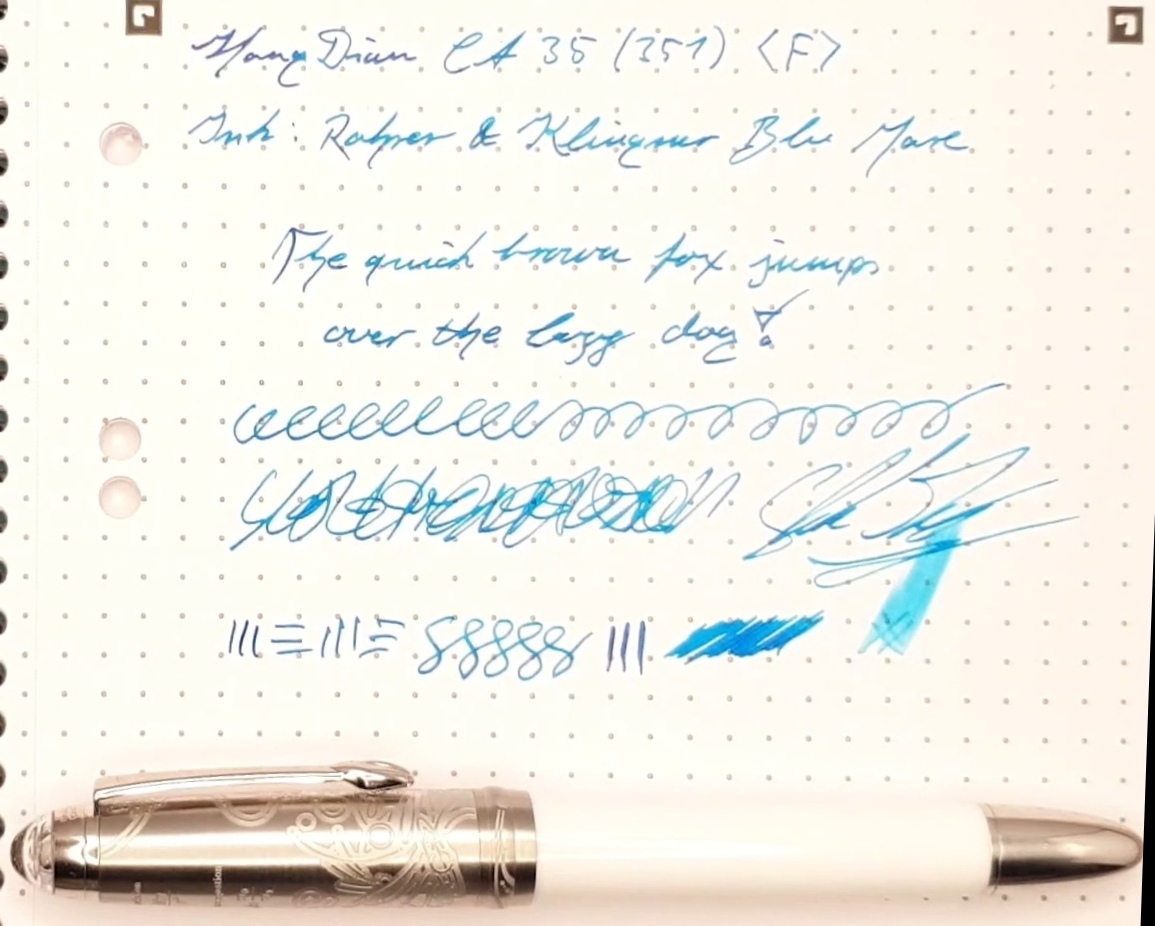 HongDian CA 35 (351) <F>
Ink: Rohrer & Klingner Blu Mare
The quick brown fox jumps
over the lazy dog!